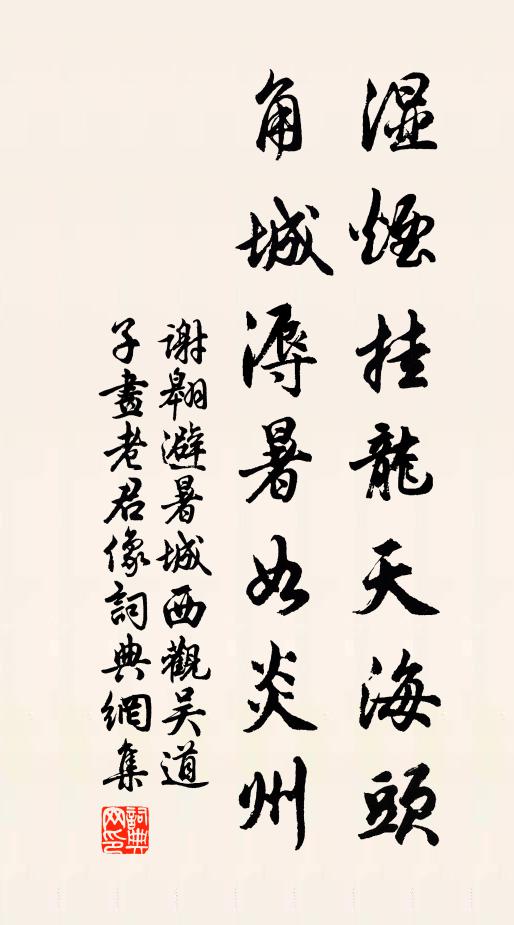 湿煙挂龍天海頭
角城溽暑如炎州
謝翱避暑城西觀吴道
子畫老君像詞典網集
詞典網印